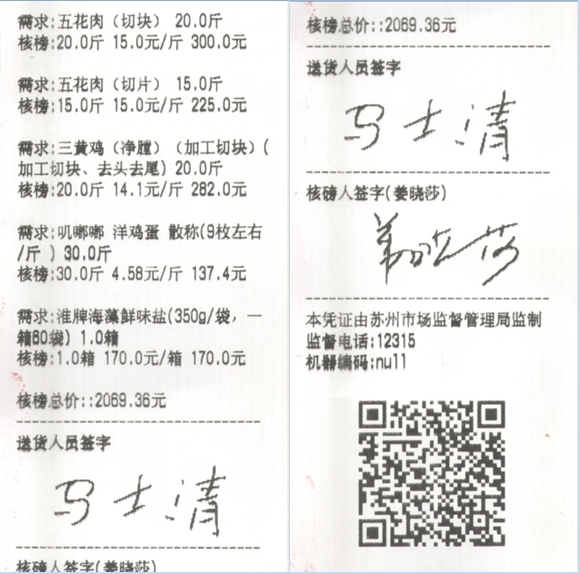 需求:五花肉（切块） 20.0斤
核榜:20.0斤 15.0元/斤 300.0元
需求:五花肉（切片） 15.0斤
核榜:15.0斤 15.0元/斤 225.0元
需求:三黄鸡（净膛）（加工切块）(
加工切块、去头去尾) 20.0斤
核榜:20.0斤 14.1元/斤 282.0元
需求:叽嘟嘟 洋鸡蛋 散称(9枚左右
/斤 ) 30.0斤
核榜:30.0斤 4.58元/斤 137.4元
需求:淮牌海藻鲜味盐(350g/袋，一
箱60袋) 1.0箱
核榜:1.0箱 170.0元/箱 170.0元
核榜总价::2069.36元
送货人员签字
马士清
核磅人签字(姜晓莎)
核榜总价::2069.36元
送货人员签字
马士清
核磅人签字(姜晓莎)
姜晓莎
本凭证由苏州市场监督管理局监制
监督电话:12315
机器编码:null